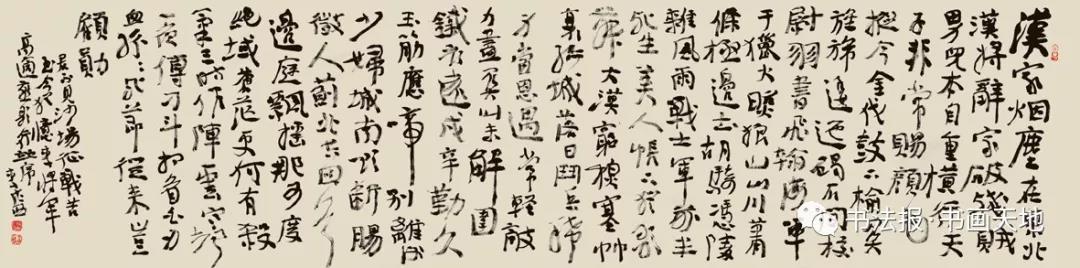 漢家烟塵在東北
漢將辭家破殘賊
男兒本自重橫行天
子非常賜顏色
摐金伐鼓下榆關
旌旆逶迤碣石間校
尉羽書飛瀚海單
于獵火照狼山山川蕭
條極邊土胡騎憑陵
雜風雨戰士軍前半
死生美人帳下猶歌
舞大漠窮秋塞艸
腓孤城落日鬥兵稀
身當恩遇常輕敵
力盡關山未解圍
鐵衣遠戍辛勤久
玉筯應啼別離後
少婦城南欲斷腸
徵人薊北空回首
邊庭飄搖那可度
絕域蒼茫更何有殺
氣三時作陣雲寒聲
一夜傳刁斗相看白刃
血紛紛死節從來豈
顧勳
君不見沙場征戰苦
至今猶憶李將軍
高適燕歌行
书法报·书画天地